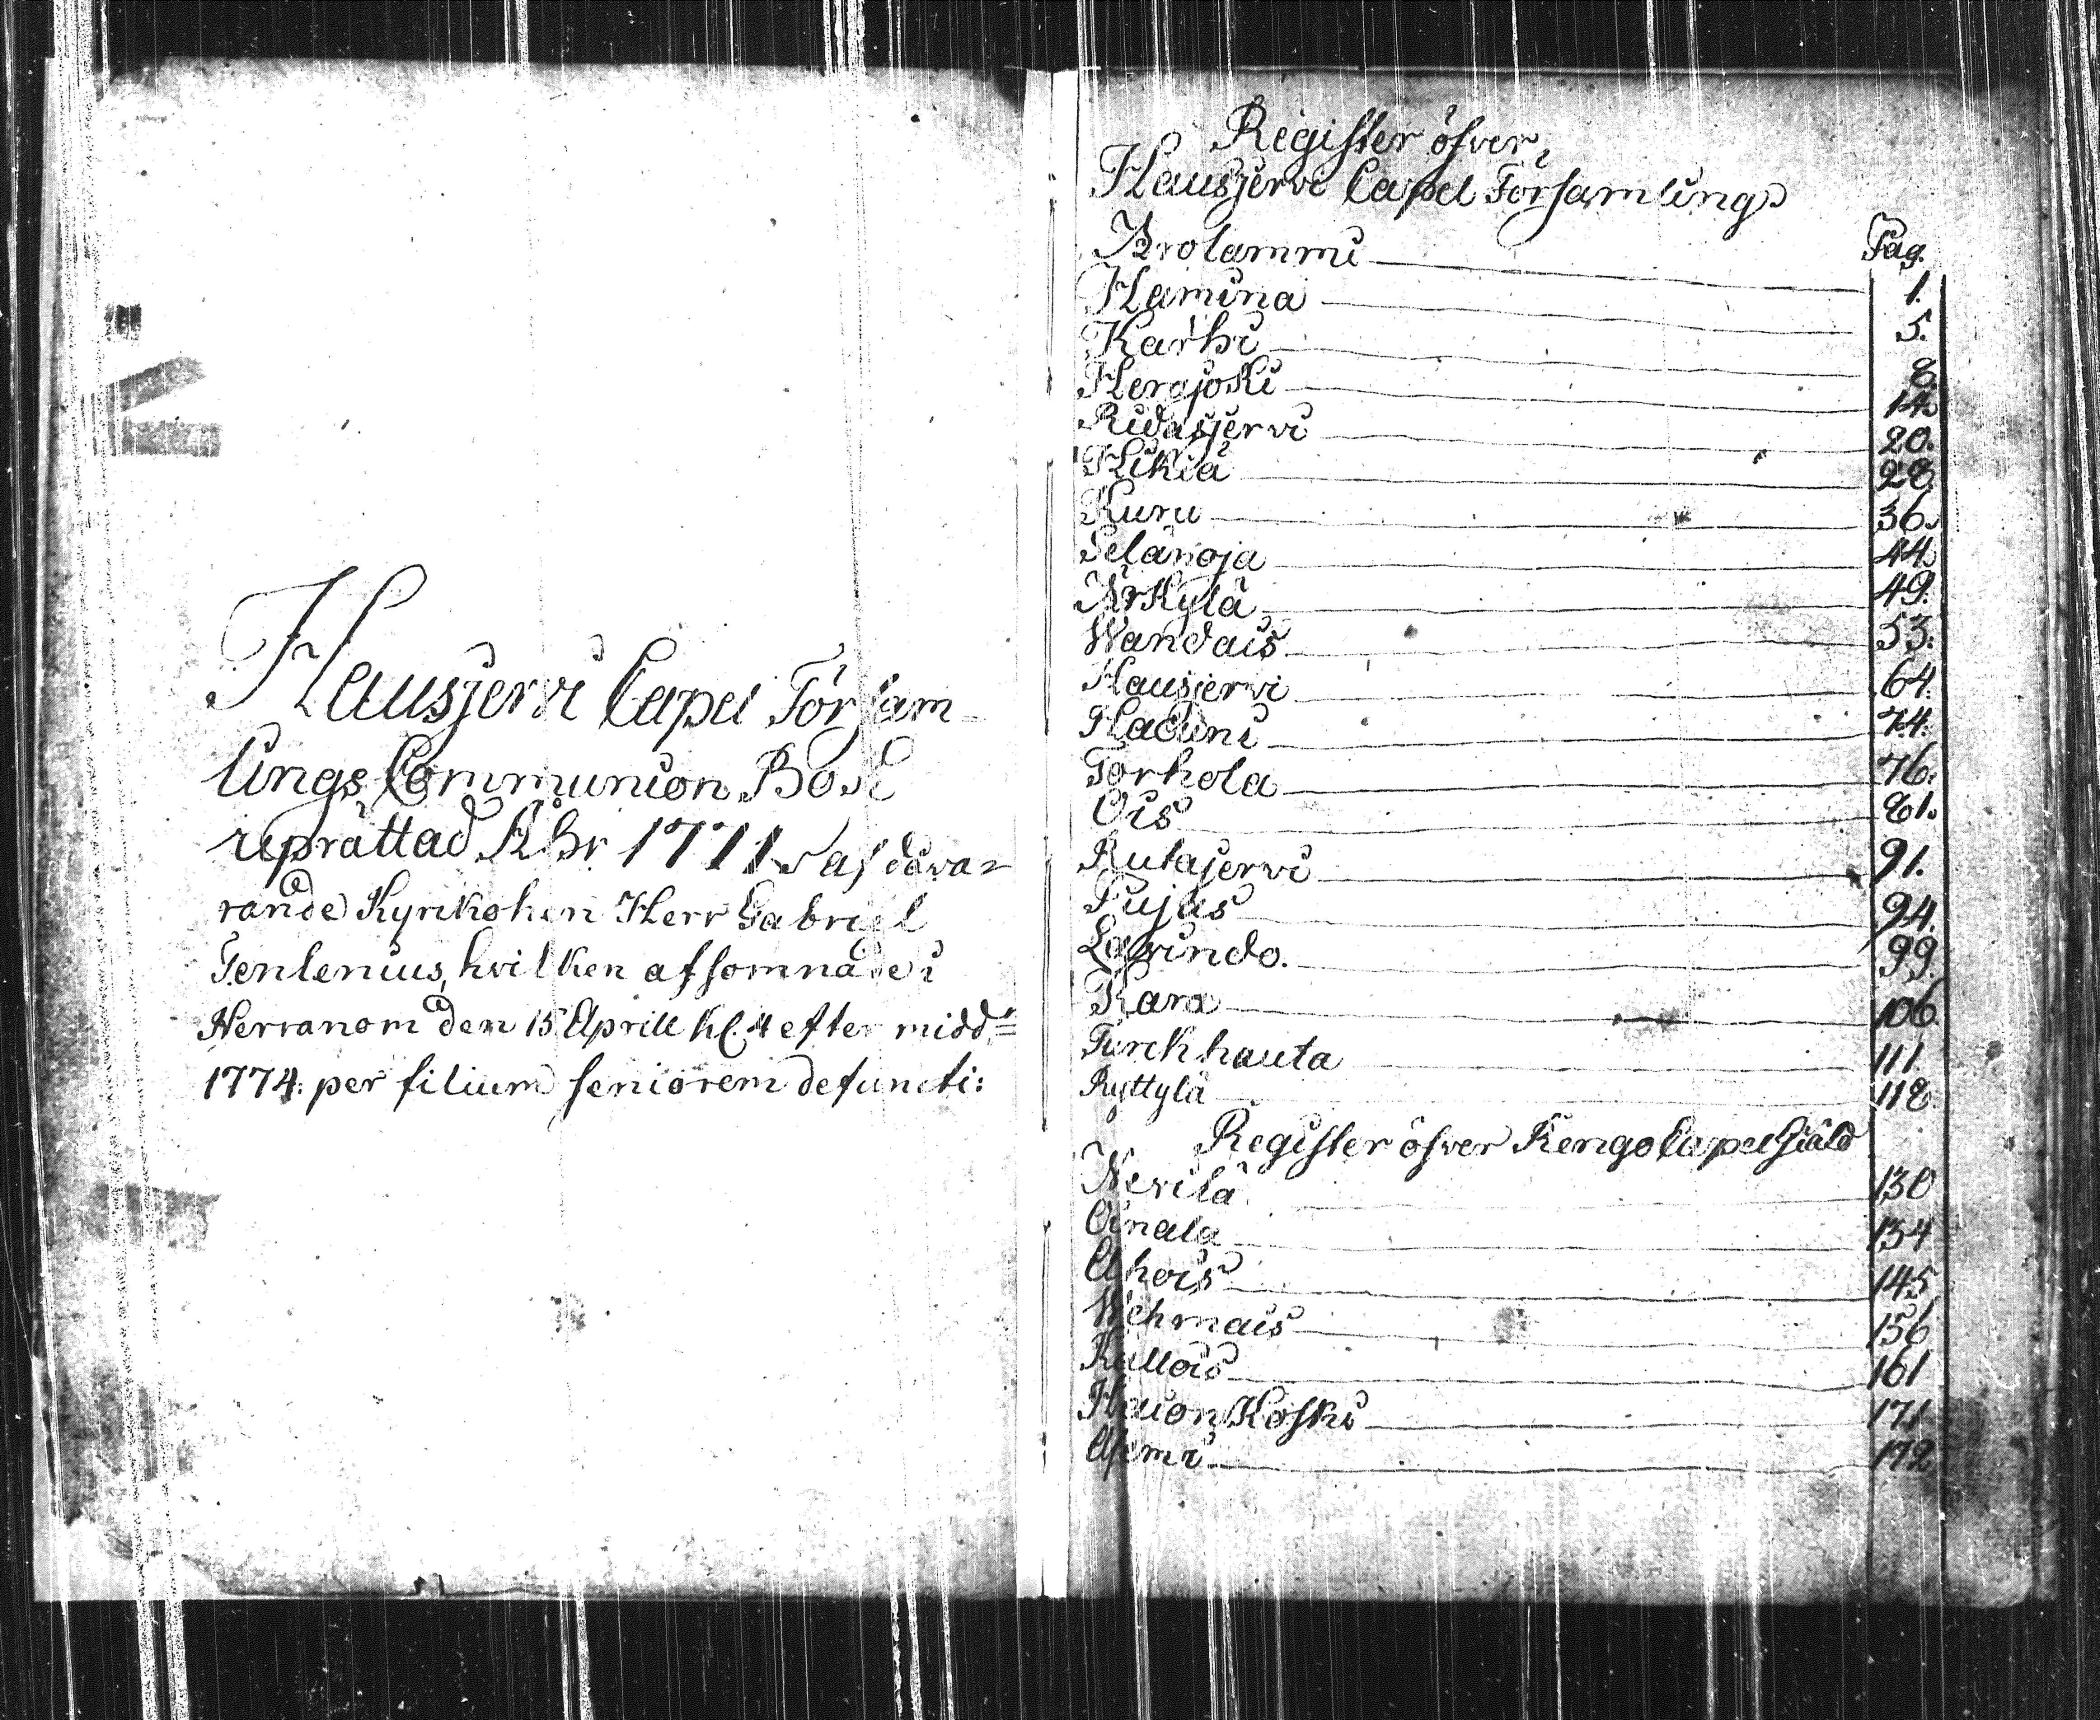 Hausjervi Capel Försam-
lings Communion Bok
uprättad Åhr 1771 af dåva=
rande Kyrkoh:n Herr Gabriel
Tenlenius, hvilken afsomnade i
Herranom den 15 Aprill kl. 4 efter midd=
1774: per filium seniorem defuncti:
Register öfver
Hausjervi Capel Församling
Pag.
Arolammi 1.
Hamina 5.
Karhi 8.
Herajoki 14.
Ridasjervi 20.
Hikiä 28.
Kuru 36.
Selänoja 44.
Arkylä 49.
Wandais 53.
Hausjervi 64.
Haduni 74.
Torhola 76.
Ois 81.
Rutajervi 91.
Pujas 94.
Lavindo. 99.
Kara 106.
Turckhauta 111.
Ryttylä 118.
Register öfver Kengo Capel Giäld
Nevilä 130
Oinala 134
Ahois 145
Wehmais 156
Kallois 161
Hauon Koski 171
Asemi 172